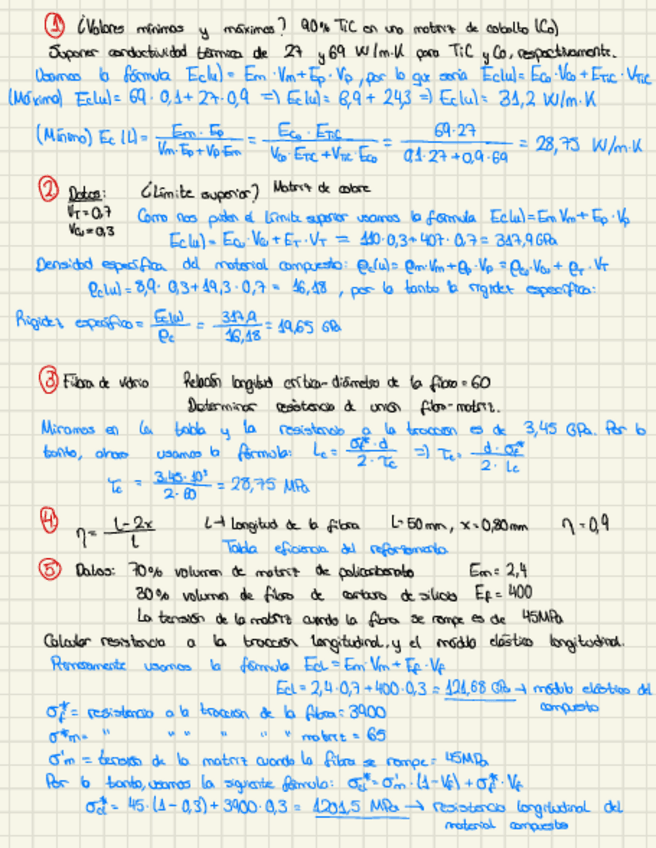 ① ¿Valores mínimos y máximos? 90% TiC en una matriz de cobalto (Co)
Suponer conductividad térmica de 27 y 69 W/m·K para TiC y Co, respectivamente.
Usamos la fórmula Ec(u) = Em · Vm + Ep · Vp, por lo que sería Ec(u) = Eco · Vco + ETiC · VTiC
(Máximo) Ec(u) = 69 · 0,1 + 27 · 0,9 => Ec(u) = 6,9 + 24,3 => Ec(u) = 31,2 W/m·K
(Mínimo) Ec (L) = Em · Ep / Vm·Ep + Vp·Em = Eco · ETiC / Vco · ETiC + VTiC · Eco = 69·27 / 0,1·27 + 0,9·69 = 28,75 W/m·K
② Datos: ¿Límite superior? Matriz de cobre
VT = 0,7
Vcu = 0,3
Como nos piden el límite superior usamos la fórmula Ec(u) = Em Vm + Ep · Vp
Ec(u) = Ecu · Vcu + ET · VT = 110·0,3 + 407·0,7 = 317,9 GPa
Densidad específica del material compuesto: ρc(u) = ρm·Vm + ρp·Vp = ρcu·Vcu + ρT·VT
ρc(u) = 8,9·0,3 + 19,3·0,7 = 16,18, por lo tanto la rigidez específica:
Rigidez específica = Ec(u) / ρc = 317,9 / 16,18 = 19,65 GPa
③ Fibra de vidrio Relación longitud crítica-diámetro de la fibra = 60
Determinar resistencia de unión fibra-matriz.
Miramos en la tabla y la resistencia a la traccion es de 3,45 GPa. Por lo
tanto, ahora usamos la fórmula: Lc = σf* · d / 2·τc => τc = d · σf* / 2·Lc
τc = 3,45·10³ / 2·60 = 28,75 MPa
④ η = L-2x / L L → longitud de la fibra L = 50 mm, x = 0,80 mm η = 0,9
Tabla eficiencia del reforzamiento
⑤ Datos: 70% volumen de matriz de policarbonato Em = 2,4
30% volumen de fibra de carburo de silicio Ef = 400
La tensión de la matriz cuando la fibra se rompe es de 45MPa
Calcular resistencia a la tracción longitudinal, y el módulo elástico longitudinal.
Primeramente usamos la fórmula Ecl = Em·Vm + Ef·Vf
Ecl = 2,4·0,7 + 400·0,3 = 121,68 GPa → módulo elástico del
compuesto
σf* = resistencia a la tracción de la fibra = 3900
σ*m = " " " " " " matriz = 65
σ'm = tensión de la matriz cuando la fibra se rompe = 45MPa
Por lo tanto, usamos la siguiente fórmula: σcl* = σ'm · (1-Vf) + σf* · Vf
σcl* = 45·(1-0,3) + 3900·0,3 = 1201,5 MPa → resistencia longitudinal del
material compuesto